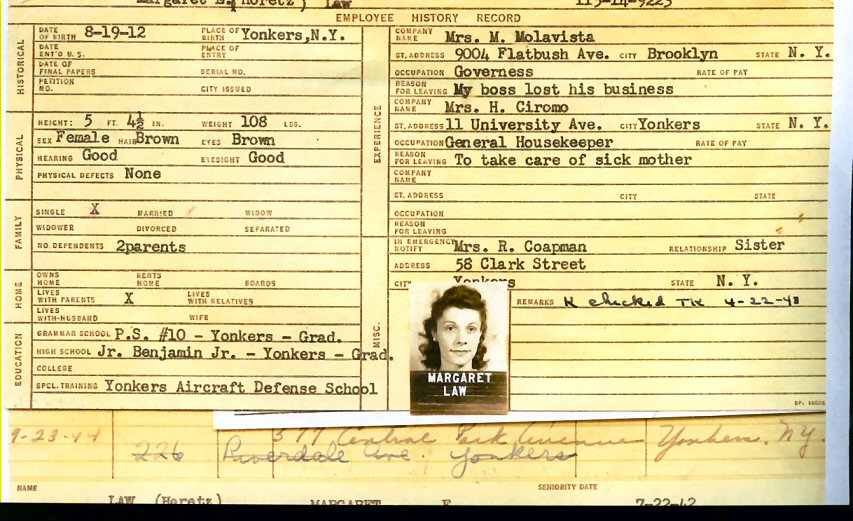 Margaret E. (Horetz) Law 115-14-9223
EMPLOYEE HISTORY RECORD
HISTORICAL
DATE OF BIRTH 8-19-12 PLACE OF BIRTH Yonkers, N.Y.
DATE ENT'D U.S. PLACE OF ENTRY
DATE OF FINAL PAPERS SERIAL NO.
PETITION NO. CITY ISSUED
PHYSICAL
HEIGHT: 5 FT. 4½ IN. WEIGHT 108 LBS.
SEX Female HAIR Brown EYES Brown
HEARING Good EYESIGHT Good
PHYSICAL DEFECTS None
FAMILY
SINGLE X MARRIED WIDOW
WIDOWER DIVORCED SEPARATED
NO. DEPENDENTS 2parents
HOME
OWNS HOME RENTS HOME BOARDS
LIVES WITH PARENTS X LIVES WITH RELATIVES
LIVES WITH-HUSBAND WIFE
EDUCATION
GRAMMAR SCHOOL P.S. #10 - Yonkers - Grad.
HIGH SCHOOL Jr. Benjamin Jr. - Yonkers - Grad.
COLLEGE
SPCL. TRAINING Yonkers Aircraft Defense School
EXPERIENCE
COMPANY NAME Mrs. M. Molavista
ST. ADDRESS 9004 Flatbush Ave. CITY Brooklyn STATE N. Y.
OCCUPATION Governess RATE OF PAY
REASON FOR LEAVING My boss lost his business
COMPANY NAME Mrs. H. Ciromo
ST. ADDRESS 11 University Ave. CITY Yonkers STATE N. Y.
OCCUPATION General Housekeeper RATE OF PAY
REASON FOR LEAVING To take care of sick mother
COMPANY NAME
ST. ADDRESS CITY STATE
OCCUPATION
REASON FOR LEAVING
MISC.
IN EMERGENCY NOTIFY Mrs. R. Coapman RELATIONSHIP Sister
ADDRESS 58 Clark Street
CITY Yonkers STATE N. Y.
REMARKS checked 4-22-43
MARGARET
LAW
9-23-44 577 Central Park Avenue Yonkers, NY.
226 Riverdale Ave. Yonkers
NAME SENIORITY DATE
LAW (Horetz) MARGARET E 7-22-42